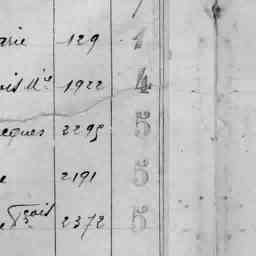 arie 129 1
ois Mle 1922 4
acques 2295 5
e 2191 5
e Fçois 2372 5